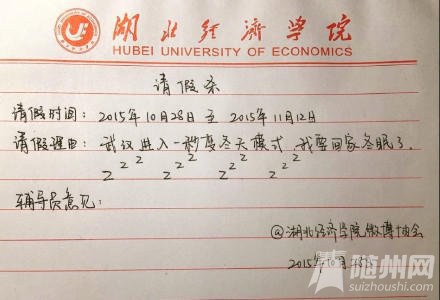 湖北经济学院
HUBEI UNIVERSITY OF ECONOMICS
请假条
请假时间：2015年10月28日 至 2015年11月12日
请假理由：武汉进入一秒变冬天模式，我要回家冬眠了。
z z z z z z z z z z z z
辅导员意见：
@湖北经济学院微博协会
2015年10月28日
随州网
suizhoushi.com